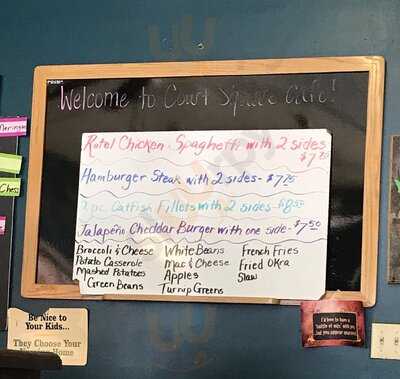 Welcome to Court Square Cafe!
Rotel Chicken Spaghetti with 2 sides
Hamburger Steak with 2 sides- $7.75
2 pc Catfish Fillets with 2 sides- $8.50
Jalapeño Cheddar Burger with one side- $7.50
Broccoli & Cheese White Beans French Fries
Potato Casserole Mac & Cheese Fried Okra
Mashed Potatoes Apples Slaw
Green Beans Turnip Greens
Chess
Be Nice to
Your Kids...
They Choose Your
Nursing Home